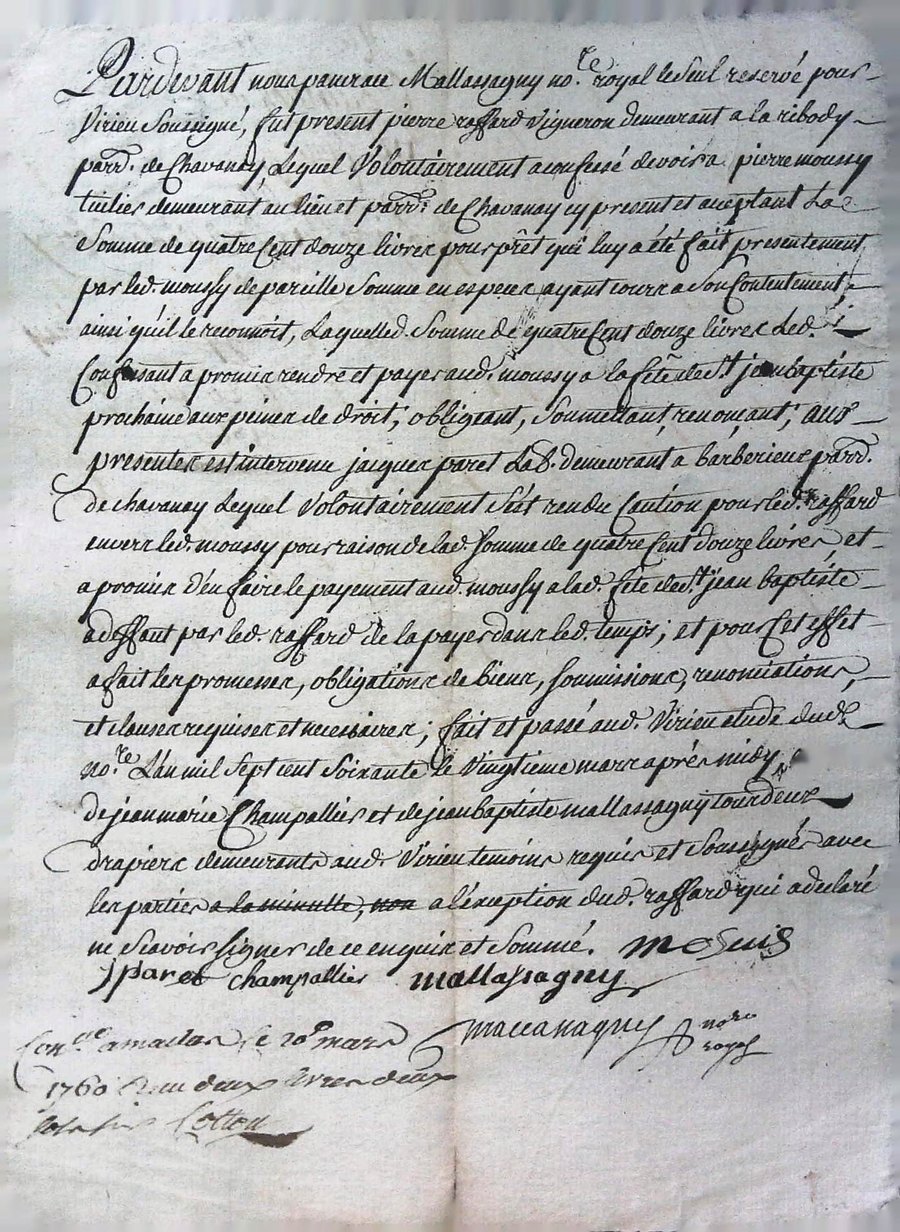 Pardevant nous pancrace Mallassagny no.re royal le seul reservé pour
Virieu soussigné, fut present pierre raffard vigneron demeurant a la ribody
parr. de Chavanay Lequel Volontairement a confessé devoir a pierre moussy
tuilier demeurant au lieu et parr. de Chavanay cy present et aceptant La
Somme de quatre Cent douze livres pour prêt qui luy a été fait presentement
par led. moussy de pareille Somme en especes ayant cours a Son Contentement,
ainsi qu'il le reconnoit, Laquelle d. Somme de quatre Cent douze livres Led.
Confessant a promis rendre et payer aud. moussy a la fête de St jean baptiste
prochaine aux peines de droit, obligeant, Soumettant, renonçant, aux
presentes est intervenu jacques paret La b. demeurant a barberieux parr.
de Chavanay Lequel Volontairement s'ést rendu Caution pour led. raffard
envers led. moussy pour raison de lad. Somme de quatre Cent douze livres, et
a promis d'en faire le payement aud. moussy a lad. fête de St jean baptiste
a deffaut par led. raffard de la payer dans led. temps; et pour Cet effet
a fait les promesses, obligations de biens, soumissions, renonciations,
et clauses requises et necessaires; fait et passé aud. Virieu etude dud.
no.re L'an mil Sept cent Soixante le Vingtieme mars aprés midy
de jean marie Champallier et de jean baptiste mallassagny tous deux
drapiers demeurants aud. Virieu temoins requis et Soussignés avec
les parties a la minutte, non a l'éxeption dud. raffard qui a declaré
ne Sçavoir signer de ce enquis et Sommé.
j paret champallier mallassagny
mallassagny no.re
royal
Con.lle a maclas le 20e mars
1760 Reçu deux livres deux
sols six Cotton